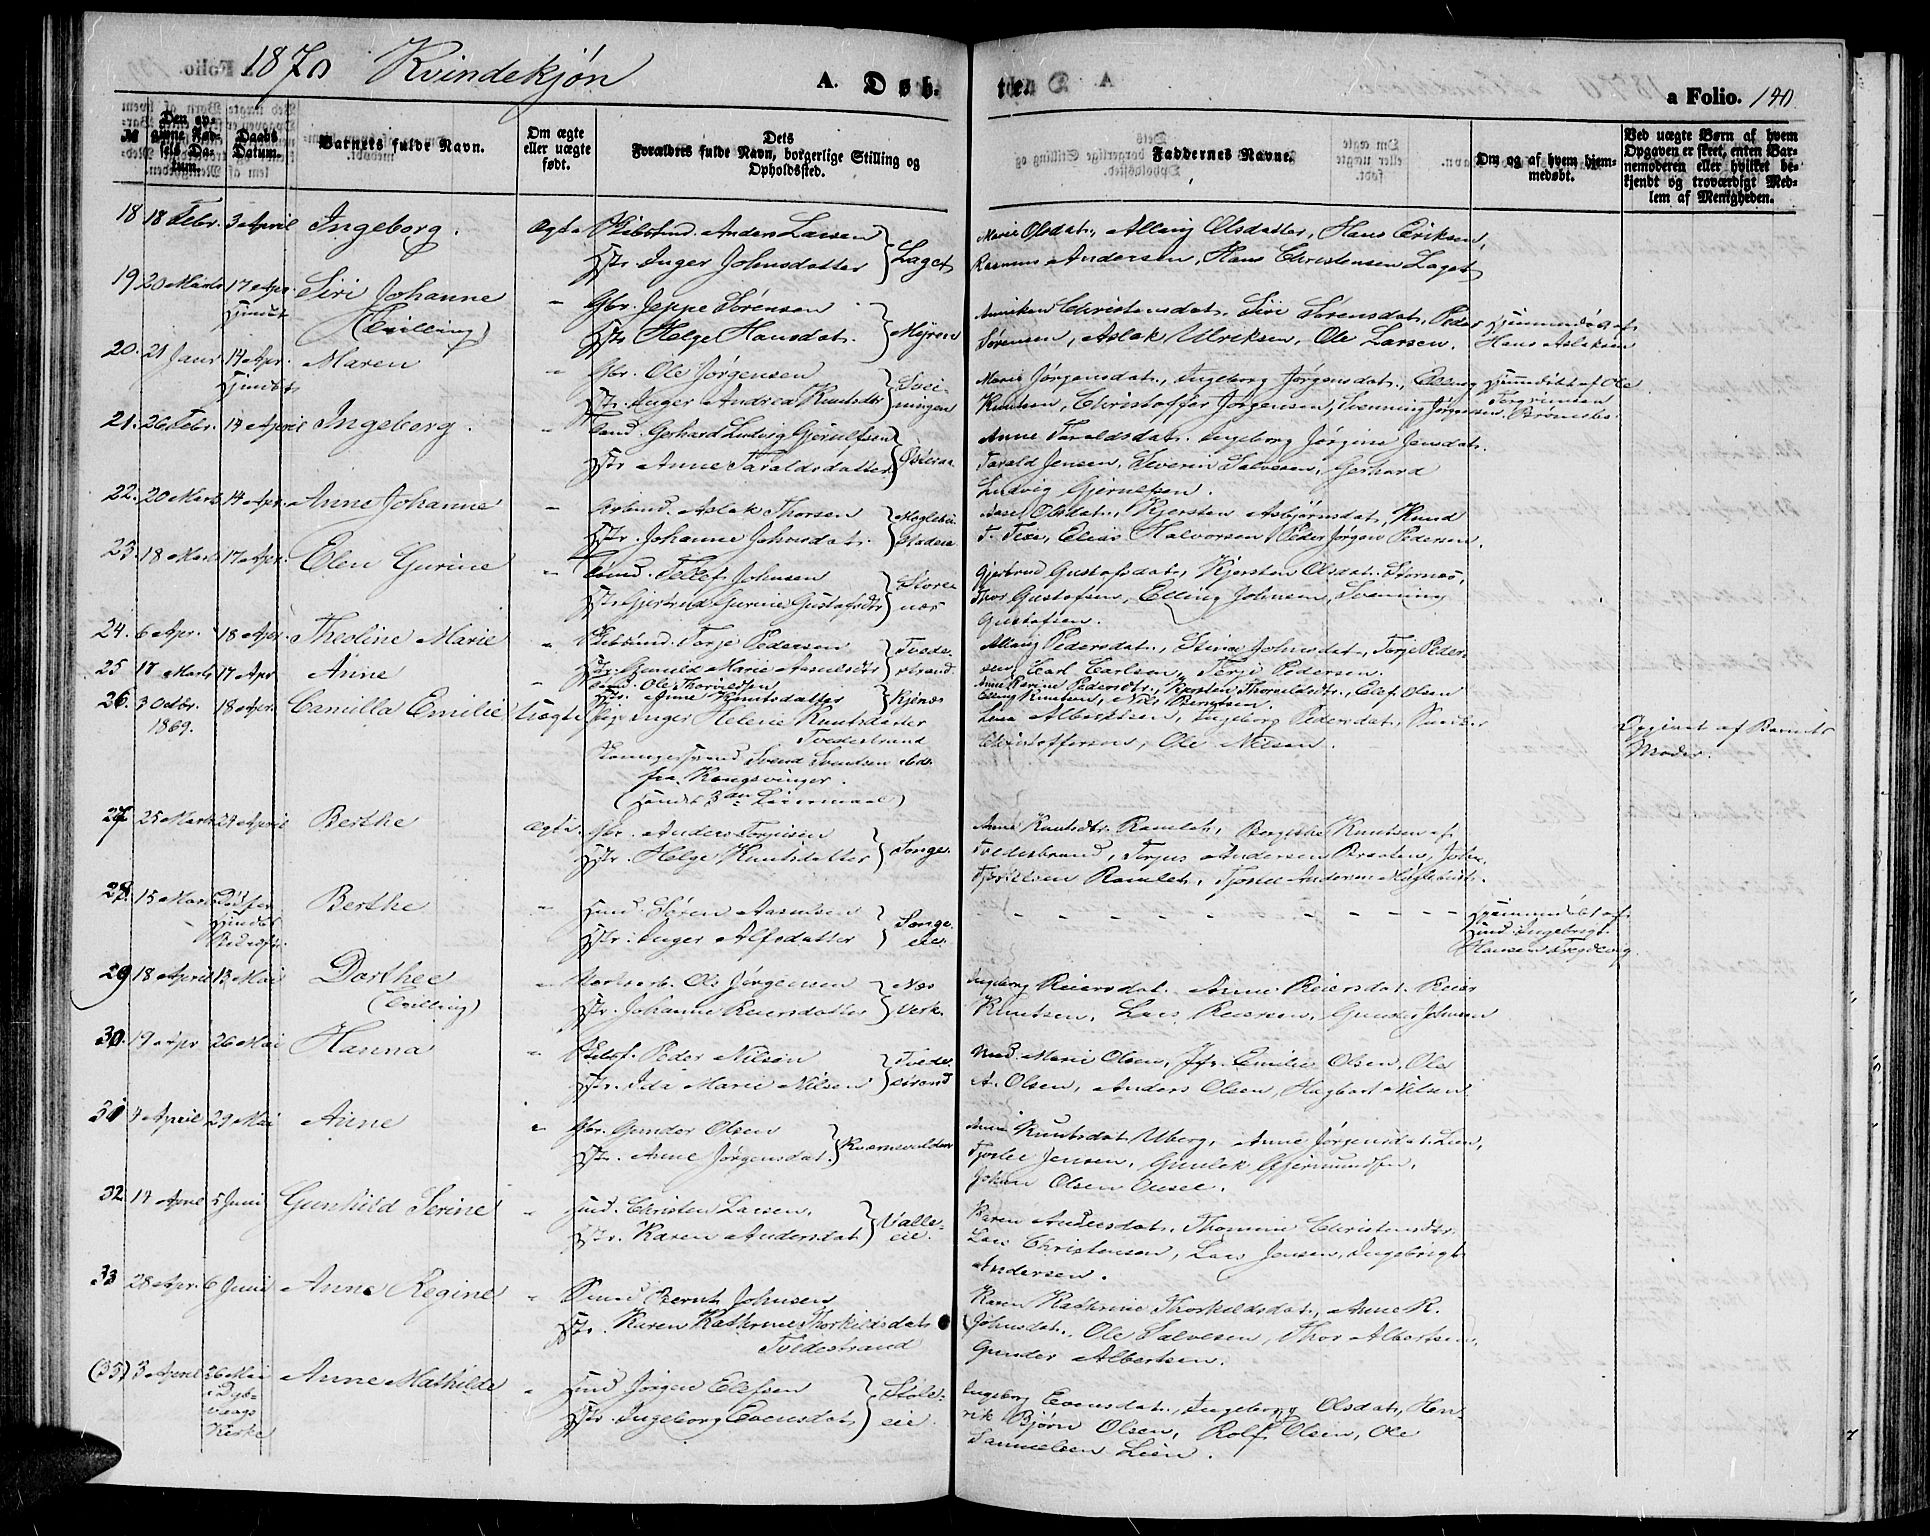 1870 Kvindekjøn
A. Døb-
te.
a Folio. 140.
№
Den op-
givne Fød-
sels Da-
tum.
Daabs
Datum.
Barnets fulde Navn.
Om ægte
eller uægte
født.
Dets
Forældres fulde Navn, borgerlige Stilling og
Opholdssted.
Faddernes Navne.
Om og af hvem hjem-
medøbt.
Ved uægte Børn af hvem
Opgaven er skeet, enten Bar-
nemoderen eller hvilket be-
kjendt og troværdigt Med-
lem af Menigheden.
18 18 Febr. 3 April Ingeborg. Ægte Anders Larsen
Hstr. Inger Johnsdatter } Laget
Marie Olsdat., Olsdatter, Hans Eriksen,
Rasmus Andersen, Hans Christensen Laget
19 20 Marts 17 Apr. Siri Johanne
(Tvilling)
" Gbr. Jeppe Sørensen
Hstr. Helge Hansdat. } Myren
Anniken Christensdat. Siri Sørensdat., Peder
Sørensen, Aslak Ulriksen, Ole Larsen.
Hjemmedøbt af
Hans Aslaksen
20. 21 Janr 17 Apr. Maren
" Gbr. Ole Jørgensen
Hstr. Inger Andrea Knutsdtr
Marie Jørgensdat., Ingeborg Jørgensdat., Elling
Knutsen, Christoffer Jørgensen, Svenning Jørgensen,
Hjemmedøbt af Ole
21. 26 Febr. 17 April Ingeborg.
" Gerhard Ludvig Gjerulfsen
Hstr. Anne Taraldsdatter } Østeraa
Anne Taraldsdat. Ingeborg Jørgine Jensdat.
Tarald Jensen, Severin Salvesen, Gerhard
Ludvig Gjerulfsen.
22. 20 Marts 17 Apr. Anne Johanne
" Aslak Thorsen
Hstr. Johanne Johnsdat.
Aasel Olsdat., Kjersten Asbjørnsdat., Knud
Elias Halvorsen, Peder Jørgen Pedersen.
23. 18 Marts 17 Apr. Elen Gurine
" Tellef Johnsen
Hstr. Gjertrud Gurine Gustafsdtr } Store
næs
Gjertrud Gustafsdat., Kjersten Olsdat. Stornæs,
Thor Gustafsen, Elling Johnsen, Svenning
Gustafsen.
24. 6 Apr. 18 Apr. Theoline Marie
" Terje Pedersen
Hstr. Gunild Marie Aanulsdtr } Tvede
strand.
Pedersdat., Stine Johnsdat., Terje Peder-
sen, Carl Carlsen, Terje Pedersen.
25 17 Marts 17 Apr Anne
" Ole Thorvildsen
Hstr. Anne Knutsdatter } Kjenæs
Anne Karine Pedersdtr., Kjersten Thoruldsdtr., Elef Olsen
Elling Knutsen, Nils Berntsen.
26. 3 Octbr. 1869. 18 Apr. Camilla Emilie Uægte
Inger Helene Knutsdatter
Tvedestrand
Svend Svendsen
fra Kongsvinger.
Lena Albertsen, Ingeborg Pedersdat.,
Christoffersen, Ole Nilsen.
Opgivet af Barnets
Moder.
27. 25 Marts 24 April Berthe Ægte
Gbr. Anders Torgisen
Hstr. Helge Knutsdatter } Songe
Anne Knutsdtr. Ramlet, Bergithe Knutsen af
Tvedestrand, Terjus Andersen Braaten, John
Ramlet, Tostel Andersen
28. 15 Marts Berthe
" Hmd. Søren Aanulsen
Hstr. Inger Alfsdatter } Songe
eie.
Hjemmedøbt af
Hmd. Ingebrigt
Hansen
29 18 April 13 Mai Dorthee
(Tvilling)
" Ole Jørgensen
Hstr. Johanne Reiersdatter } Næs
Værk.
Ingeborg Reiersdat. Anne Reiersdat. Reier
Knutsen, Lars Reiersen, Gunder Johnsen
30. 19 Apr 26 Mai Hanna
" Peder Nilsen
Hstr. Ida Marie Nilsen } Tvede
strand
Mad. Marie Olsen, Jfr. Emilie Olsen, Ole
A. Olsen, Anders Olsen, Hagbart Nilsen.
31 4 April 29 Mai Anne
" Gbr. Gunder Olsen
Hstr. Anne Jørgensdat. } Kværnevolden
Anne Knutsdat. Uberg, Anne Jørgensdat. Lien,
Tjostel Jensen, Gunlek Gjermundsen,
Johan Olsen
32. 17 April 5 Juni Gunhild Serine
" Hmd. Christen Larsen,
Hstr. Karen Andersdat. } Valle-
eie.
Karen Andersdat., Thomine Christensdtr.
Lars Christensen, Lars Jensen, Ingebrigt
Andersen.
33 28 Apr. 6 Juni Anne Regine
" Bernt Johnsen
Hstr. Karen Kathrine Thorkildsdat.
Tvedestrand
Karen Kathrine Thorkildsdat., Anne K.
Johnsdat., Ole Salvesen, Thor Albertsen,
Gunder Albertsen.
(35) 3 April 26 Mai
i Dyb-
vaags
Kirke
Anne Mathilde
" Hmd Jørgen Elefsen
Hstr. Ingeborg Evensdat. } Støle-
eie.
Ingeborg Evensdat., Ingeborg Olsdat., Hen-
rik Bjørn Olsen, Rolf Olsen, Ole
Samuelsen Lien.